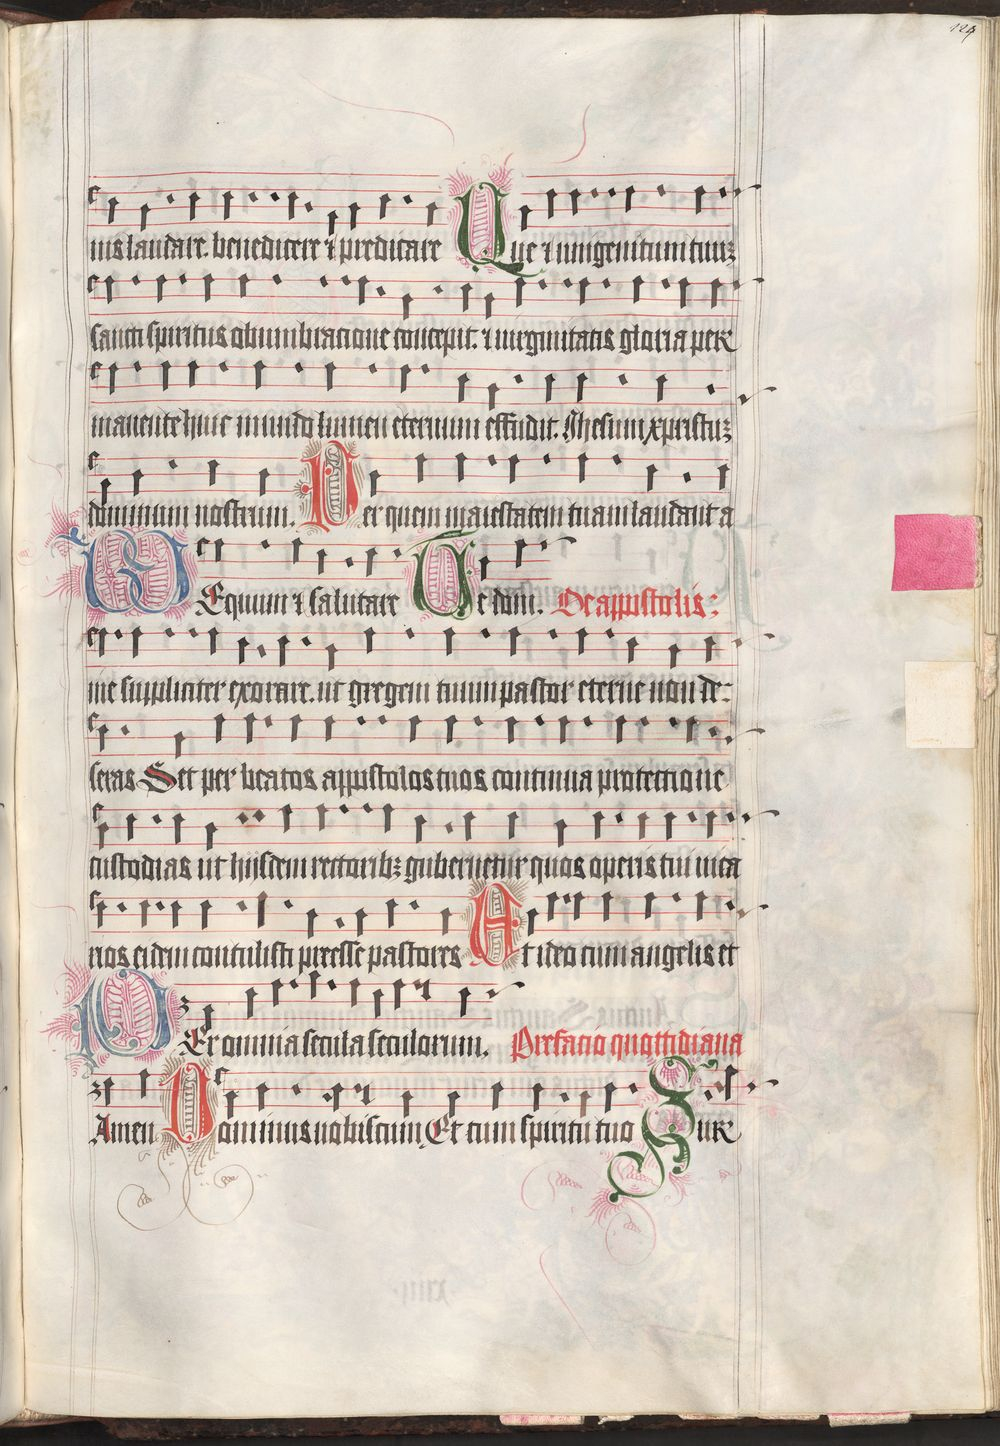 124
nis laudare. benedicere ⁊ predicare Que ⁊ unigenitum tuuꝫ
sancti spiritus obumbracione concepit. ⁊ uirginitatis gloria per
manente huic mundo lumen eternum effudit. Ihesum xpristuꝫ
dominum nostrum. Per quem maiestatem tuam laudant a
WEquum ⁊ salutare Te dom. De appostolis:
ne suppliciter exorare. ut gregem tuum pastor eterne non de-
seras Set per beatos appostolos tuos continua protectione
custodias ut hijsdem rectoribꝫ gubernetur quos operis tui uica
rios eidem contulisti preesse pastores Et ideo cum angelis et
PEr omnia secula seculorum. Prefacio quottidiana
Amen Dominus uobiscum Et cum spiritu tuo Sur